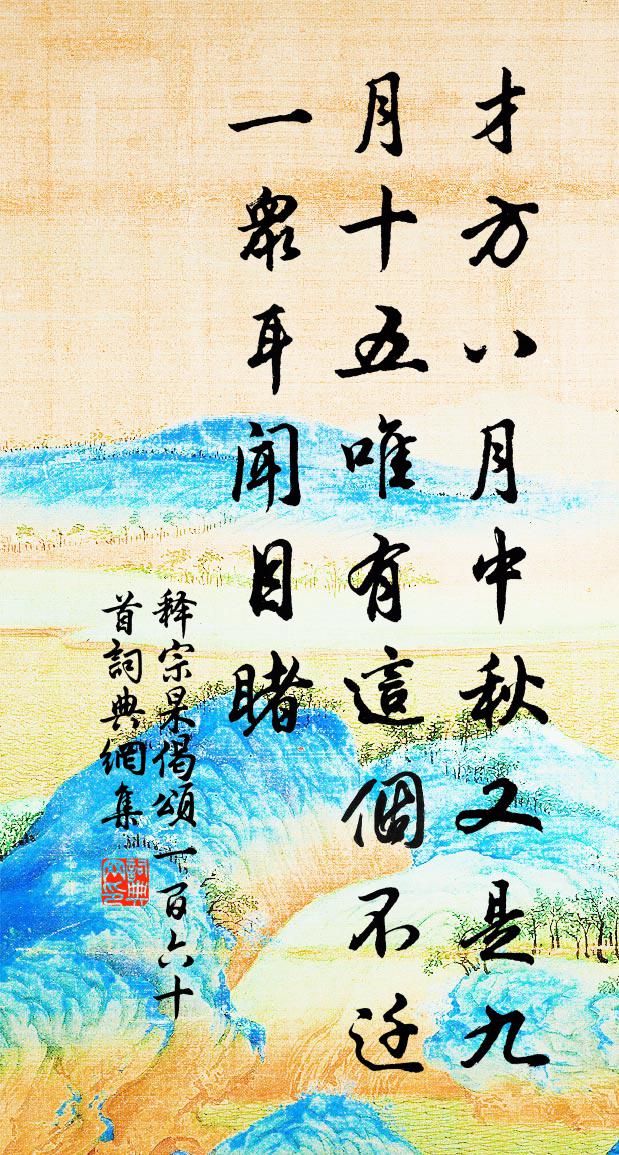 才方八月中秋又是九
月十五唯有這個不迁
一眾耳聞目睹
释宗杲偈頌一百六十
首詞典網集